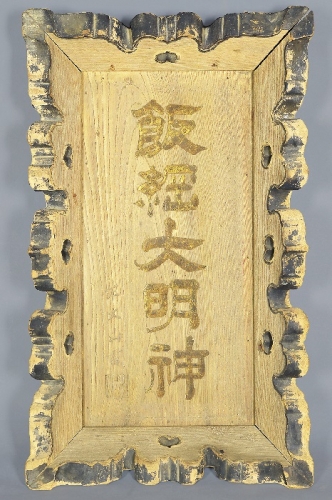 飯綱大明神